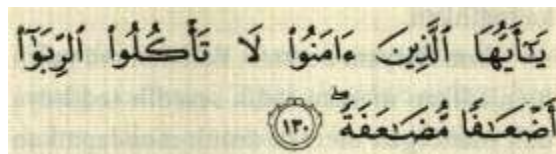 يَـٰٓأَيُّهَا ٱلَّذِينَ ءَامَنُوا۟ لَا تَأْكُلُوا۟ ٱلرِّبَوٰٓا۟
أَضْعَـٰفًا مُّضَـٰعَفَةً ۖ ١٣٠